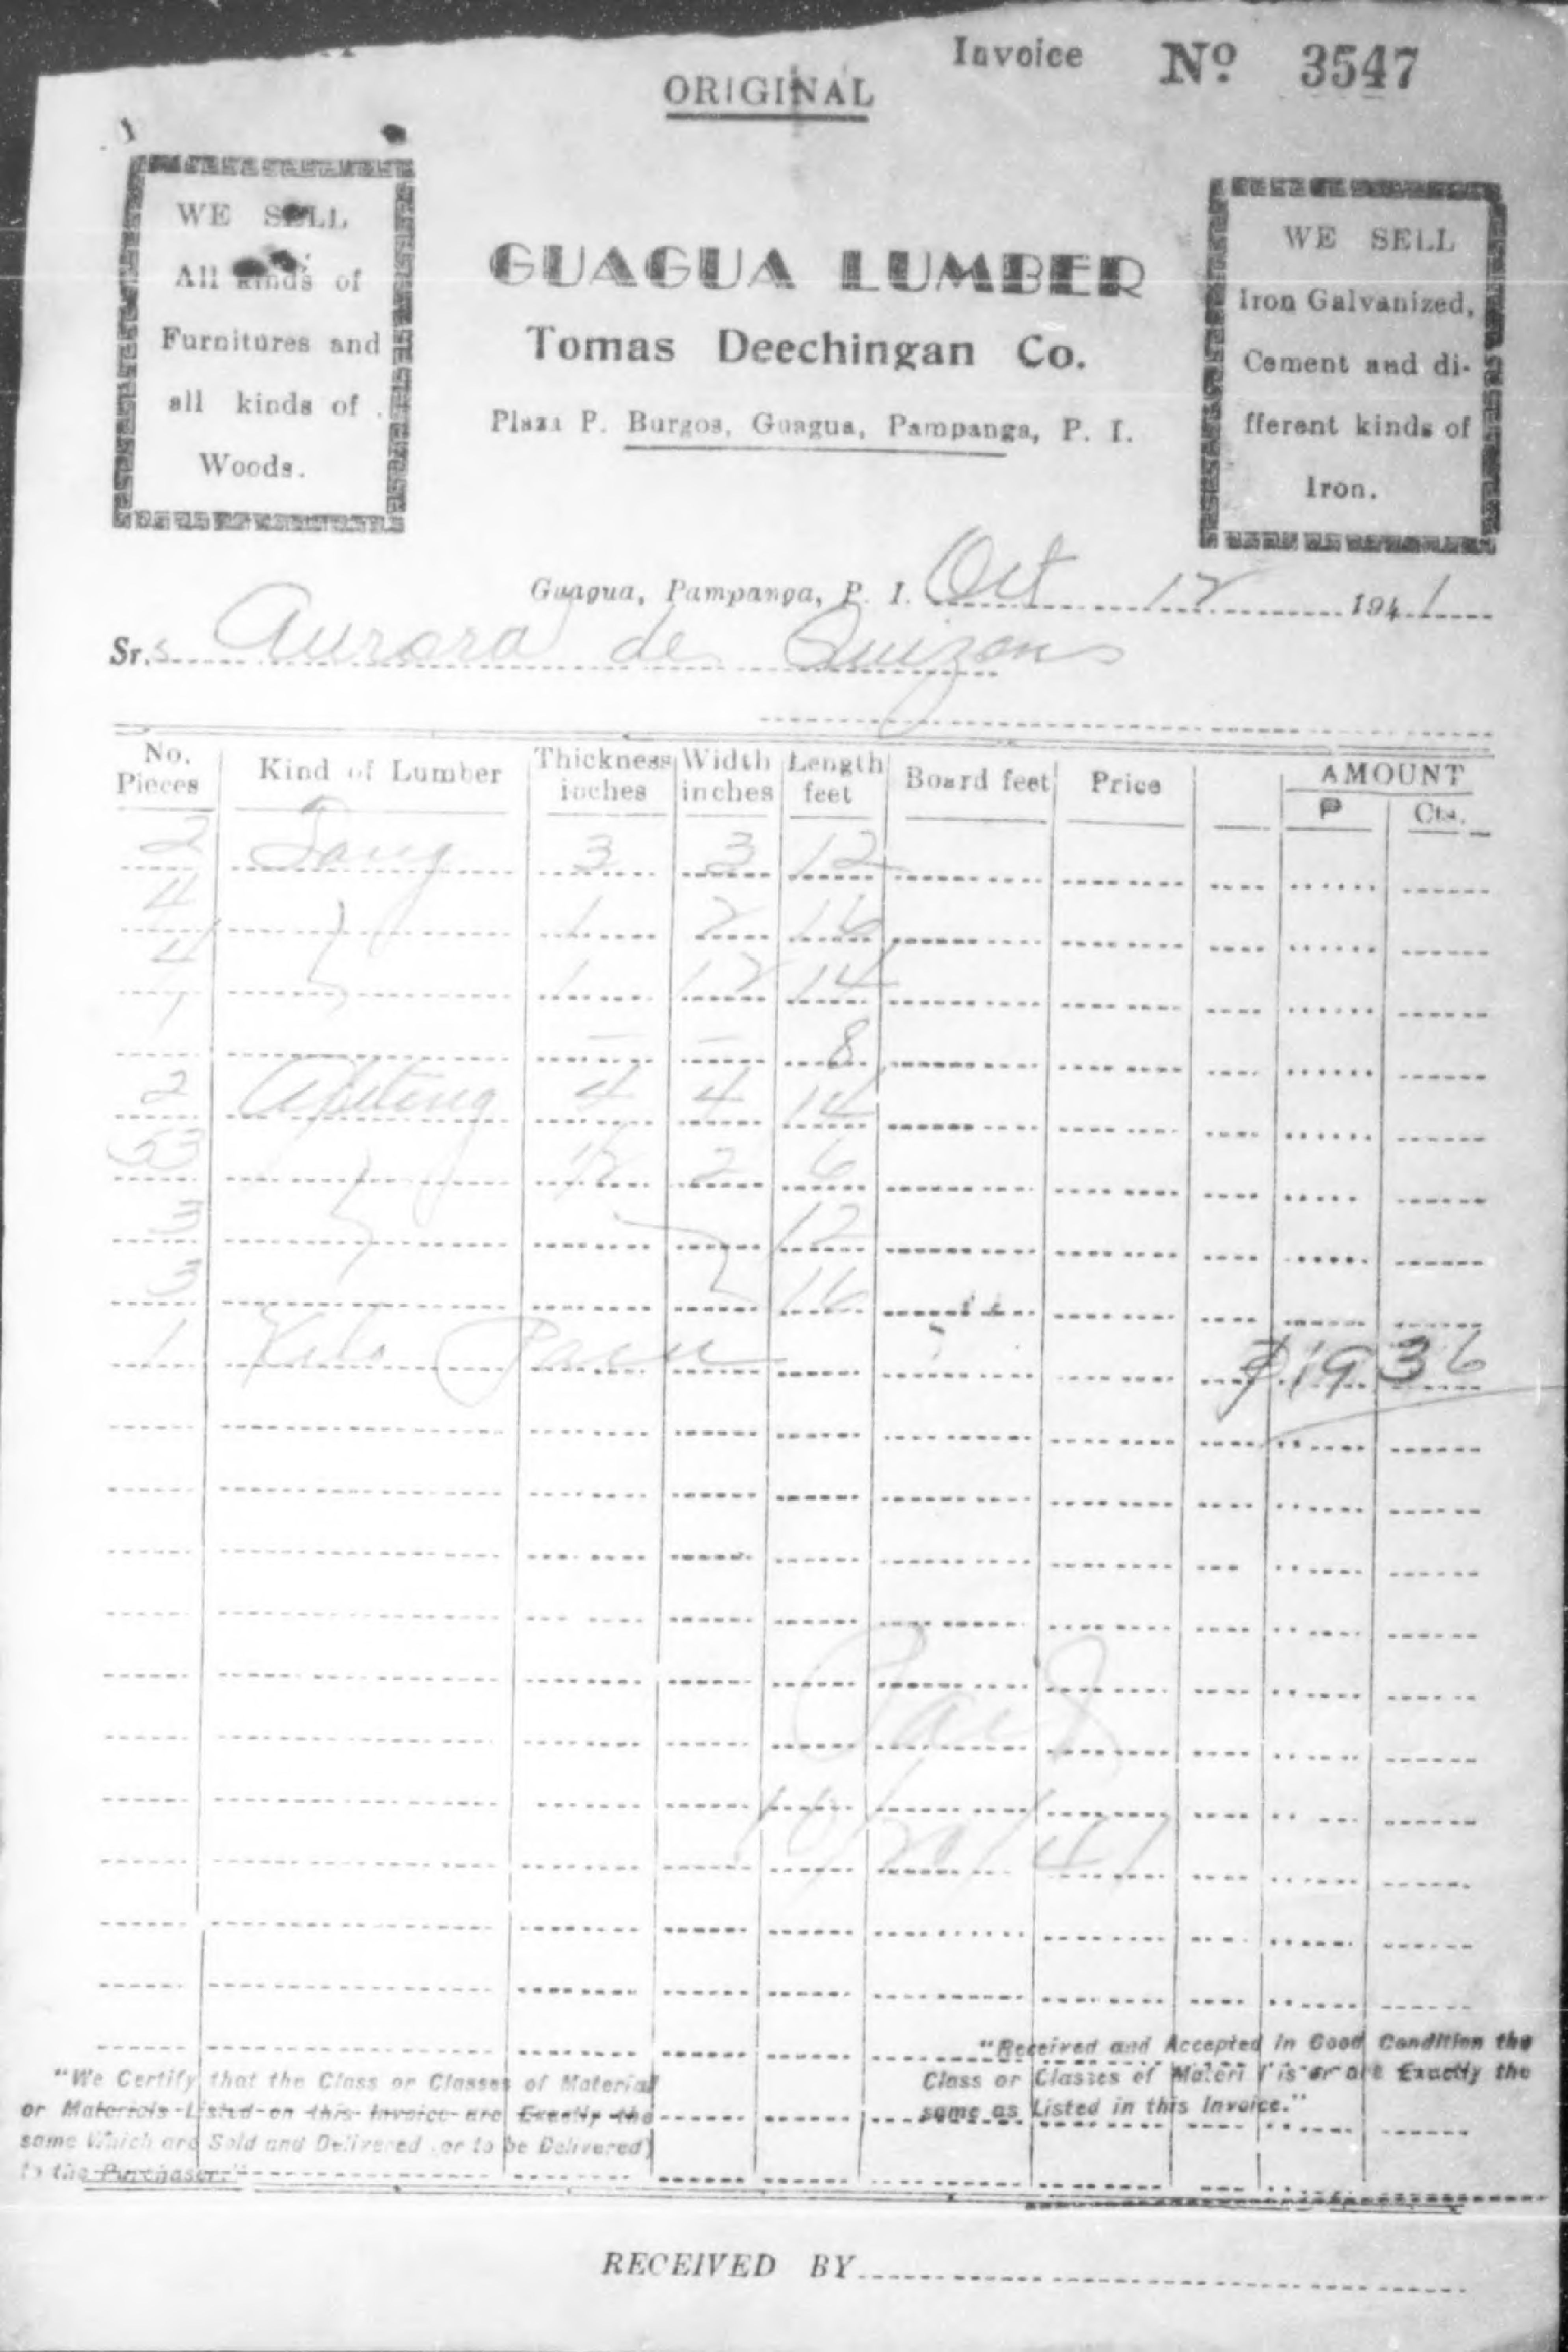 Invoice Nº 3547
ORIGINAL
WE SELL
All kinds of
Furnitures and
all kinds of
Woods.
GUAGUA LUMBER
Tomas Deechingan Co.
Plaza P. Burgos, Guagua, Pampanga, P. I.
WE SELL
Iron Galvanized,
Cement and di-
fferent kinds of
Iron.
Guagua, Pampanga, P. I. Oct 12 1941
Sr.s Aurora de Quizons
No. Pieces Kind of Lumber Thickness inches Width inches Length feet Board feet Price AMOUNT
₱ Cts.
2 3 3 12
4 1 2 16
4 1 12 14
1 — — 8
2 Apitong 4 4 14
53 1/2 2 6
3 12
3 16
1 Kilo
₱19 36
Paid
10/20/41
"We Certify that the Class or Classes of Material
or Materials Listed on this Invoice are Exactly the
same Which are Sold and Delivered (or to be Delivered)
to the Purchaser."
"Received and Accepted in Good Condition the
Class or Classes of Materi l is or are Exactly the
same as Listed in this Invoice."
RECEIVED BY